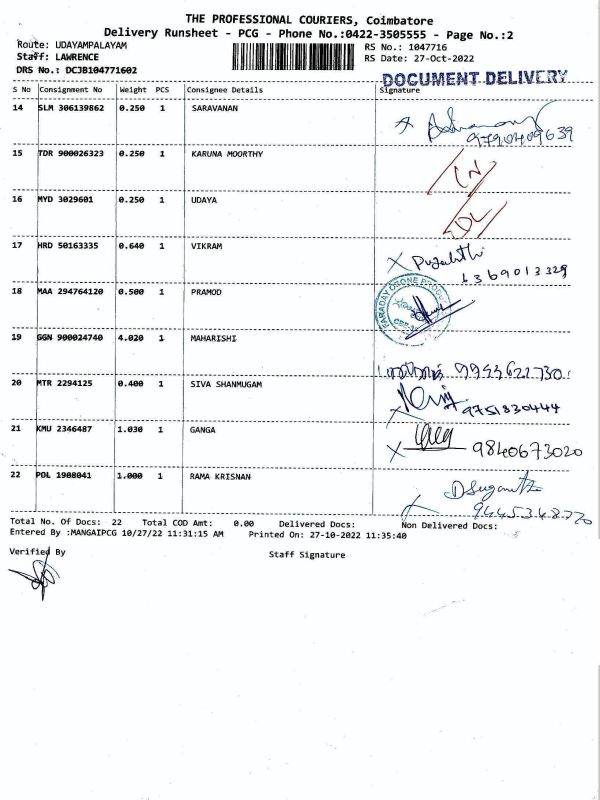 THE PROFESSIONAL COURIERS, Coimbatore
Delivery Runsheet - PCG - Phone No.:0422-3505555 - Page No.:2
Route: UDAYAMPALAYAM RS No.: 1047716
Staff: LAWRENCE RS Date: 27-Oct-2022
DRS No.: DCJB104771602
DOCUMENT DELIVERY
S No Consignment No Weight PCS Consignee Details Signature
14 SLM 306139862 0.250 1 SARAVANAN
9790409639
15 TDR 900026323 0.250 1 KARUNA MOORTHY
16 MYD 3029601 0.250 1 UDAYA
17 HRD 50163335 0.640 1 VIKRAM
6369013329
18 MAA 294764120 0.500 1 PRAMOD
FARADAY OZONE
19 GGN 900024740 4.020 1 MAHARISHI
20 MTR 2294125 0.400 1 SIVA SHANMUGAM
9751830444
21 KMU 2346487 1.030 1 GANGA
9840673020
22 POL 1908041 1.000 1 RAMA KRISNAN
Total No. Of Docs: 22 Total COD Amt: 0.00 Delivered Docs: Non Delivered Docs:
Entered By :MANGAIPCG 10/27/22 11:31:15 AM Printed On: 27-10-2022 11:35:40
Verified By Staff Signature